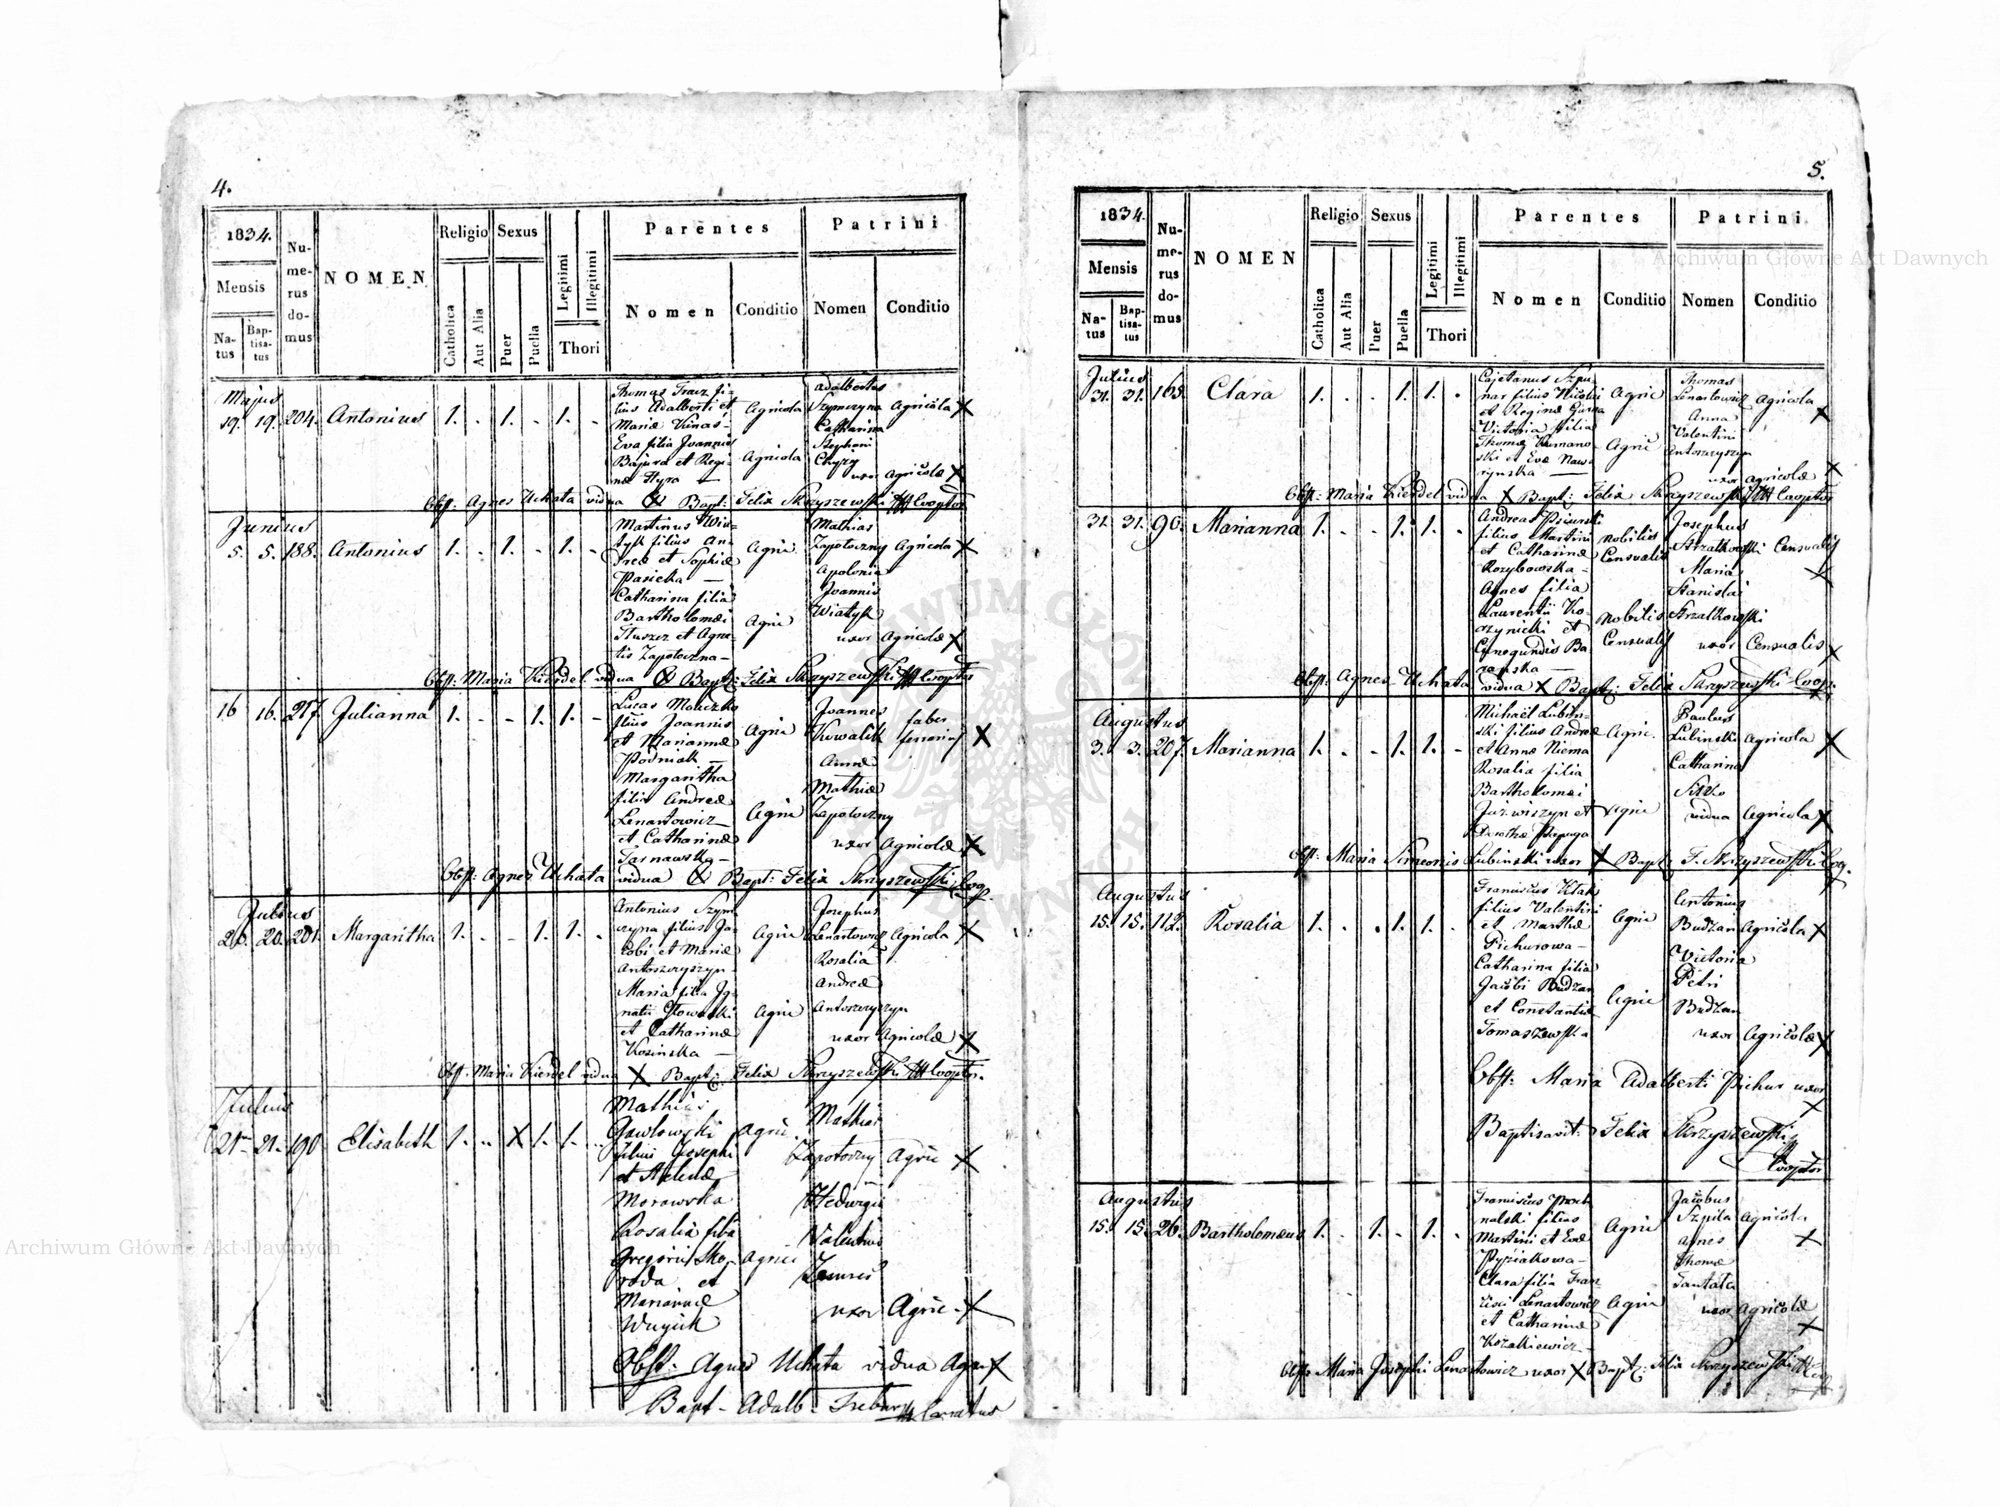 4.
1834.
Mensis
Na-
tus
Bap-
tisa-
tus
Nu-
me-
rus
do-
mus
NOMEN
Religio
Catholica
Aut Alia
Sexus
Puer
Puella
Legitimi
Illegitimi
Thori
Parentes
Nomen
Conditio
Patrini
Nomen
Conditio
Majus
19. 19. 204. Antonius 1. . 1. . 1. .
Thomas Tracz fi-
lius Adalberti et
Mariæ
Eva filia Joannis
Bajura et Regi-
næ Hyra —
Agricola
Agricola
Adalbertus
Szymczyna Agricola X
Catharina
Stephani
Chyży
uxor Agricolæ X
Obst: Agnes Uchata vidua X Bapt: Felix Skrzyszewski Cooptor
Junius
5. 5. 188. Antonius 1. . 1. . 1. .
Martinus Wia-
tyk filius An-
dreæ et Sophiæ
Pasieka —
Catharina filia
Bartholomæi
Tłuszcz et Agne-
tis Zapotoczna –
Agric.
Agric
Mathias
Zapotoczny Agricola X
Apolonia
Joannis
Wiatyk
uxor Agricolæ X
Obst: Maria Kiendel vidua X Bapt: Felix Skrzyszewski Cooptor
16 16. 217. Julianna 1. . . 1. 1. .
Lucas
filius Joannis
et Mariannæ
Podniak —
Margaritha
filia Andreæ
Lenartowicz
et Catharinæ
Tarnawska –
Agric
Agric
Joannes faber
Kowalik ferrarius X
Anna
Mathiæ
Zapotoczny
uxor Agricolæ X
Obst: Agnes Uchata vidua X Bapt: Felix Skrzyszewski Coop.
Julius
20. 20. 201. Margaritha 1. . . 1. 1. .
Antonius Szym
czyna filius Ja-
cobi et Mariæ
Antoszczyszyn
Maria filia Ig-
natii Głowacki
et Catharinæ
Kosinska —
Agric
Agric
Josephus
Lenartowicz Agricola X
Rosalia
Andreæ
Antoszczyszyn
uxor Agricolæ X
Obst: Maria Kiendel vidua X Bapt: Felix Skrzyszewski Cooptor.
Julius
21. 21. 190 Elisabeth 1. .. X 1. 1. ..
Mathias
Gawłowski
filius Josephi
et Helenæ
Morawska
Rosalia filia
Gregorii Sko-
roda et
Mariannæ
Wujcik
Agric.
Agric
Mathias
Zapotoczny Agric X
Hedwigis
Valentini
uxor Agric X
Obst: Agnes Uchata vidua Agr. X
Bapt – Adalb – Curatus
5.
1834.
Mensis
Na-
tus
Bap-
tisa-
tus
Nu-
me-
rus
do-
mus
NOMEN
Religio
Catholica
Aut Alia
Sexus
Puer
Puella
Legitimi
Illegitimi
Thori
Parentes
Nomen
Conditio
Patrini
Nomen
Conditio
Julius
31. 31. 163. Clara 1. . . 1. 1. .
Cajetanus Szpu
nar filius Nicolai
et Reginæ
Victoria filia
Thomæ Kumano-
ski et Evæ Naw-
rynska —
Agric
Agric
Thomas
Lenartowicz Agricola X
Anna
Valentini
Antoszczyszyn
uxor Agricolæ X
Obst: Maria Kiendel vidua X Bapt: Felix Skrzyszewski Cooptor
31. 31. 96. Marianna 1. . . 1. 1. .
Andreas Psiurski
filius Martini
et Catharinæ
Kozybowska –
Agnes filia
Laurentii Ko-
rzynicki et
Cunegundis Ba
ranska —
nobilis
Censualis
nobilis
Censualis
Josephus
Strzałkowski Censualis X
Maria
Stanislai
Strzałkowski
uxor Censualis X
Obst: Agnes Uchata vidua X Bapt: Felix Skrzyszewski Coop.
Augustus
3. 3. 207. Marianna 1. . . 1. 1. .
Michaël Lubin-
ski filius Andreæ
et Annæ Niema
Rosalia filia
Bartholomæi
Juzwiszyn et
Dorothæ
Agric.
Agric
Paulus
Lubinski Agricola X
Catharina
vidua Agricola X
Obst: Maria Simeonis Lubinski uxor X Bapt: F. Skrzyszewski Coop.
Augustus
15. 15. 112. Rosalia 1. . . 1. 1. .
Franciscus Ktak
filius Valentini
et Marthæ
Pichurowa –
Catharina filia
Jacobi Budzan
et Constantiæ
Tomaszewska
Agric
Agric
Antonius
Budzan Agricola X
Victoria
Petri
Budzan
uxor Agricolæ X
Obst: Maria Adalberti Pichur uxor X
Baptisavit: Felix Skrzyszewski
Cooptor
Augustus
15. 15. 26. Bartholomæus 1. . 1. . 1. .
Franciscus
filius
Martini et Evæ
Pyziakowa –
Clara filia Fran
cisci Lenartowicz
et Catharinæ
Kozakiewicz –
Agric
Agric
Jacobus
Szpila Agricola X
Agnes
Thomæ
uxor Agricolæ X
Obst: Maria Josephi Lenartowicz uxor X Bapt: Felix Skrzyszewski
Archiwum Główne Akt Dawnych
Archiwum Główne Akt Dawnych
ARCHIWUM GŁÓWNE AKT DAWNYCH